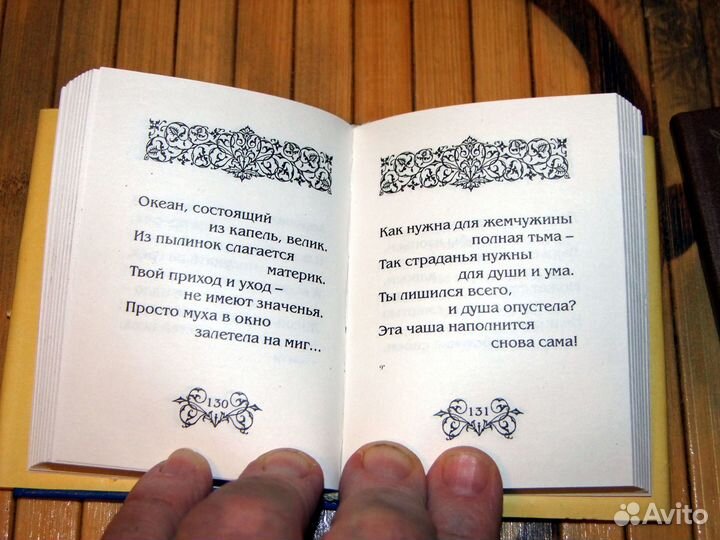 Океан, состоящий
из капель, велик.
Из пылинок слагается
материк.
Твой приход и уход –
не имеют значенья.
Просто муха в окно
залетела на миг...
130
Как нужна для жемчужины
полная тьма –
Так страданья нужны
для души и ума.
Ты лишился всего,
и душа опустела?
Эта чаша наполнится
снова сама!
9*
131
Avito